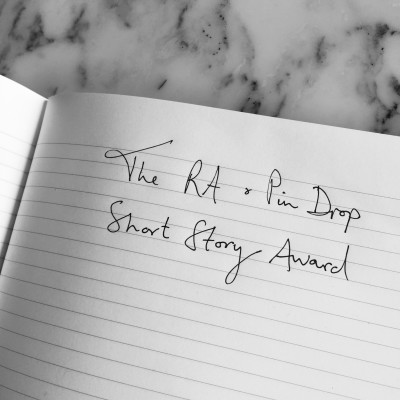 The RA & Pin Drop
Short Story Award